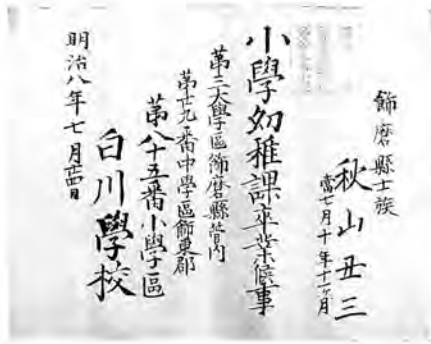 飾磨縣士族
秋山丑三
當七月十年十一ヶ月
小學幼稚課卒業候事
第三大學區飾磨縣管内
第廿九番中學區飾東郡
第八十五番小學區
白川學校
明治八年七月